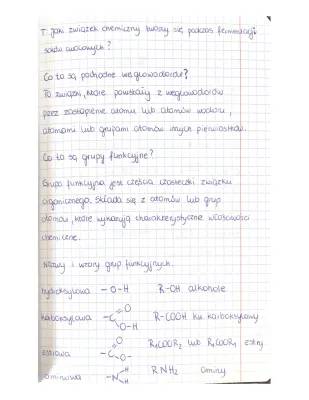 T: Jaki związek chemiczny tworzy się podczas fermentacji
soków owocowych?
Co to są pochodne węglowodorów?
To związki, które powstały z węglowodorów
przez zastąpienie atomu lub atomów wodoru,
atomami lub grupami atomów innych pierwiastków.
Co to są grupy funkcyjne?
Grupa funkcyjna jest częścią cząsteczki związku
organicznego, składa się z atomów lub grup
atomów, które wykazują charakterystyczne właściwości
chemiczne.
Nazwy i wzory grup funkcyjnych.
hydroksylowa -O-H R-OH alkohole
karboksylowa -C=O O-H R-COOH kw. karboksylowy
estrowa -C=O O- R₁COOR₂ lub R₁COOR₁ estry
aminowa -N-H H RNH₂ aminy